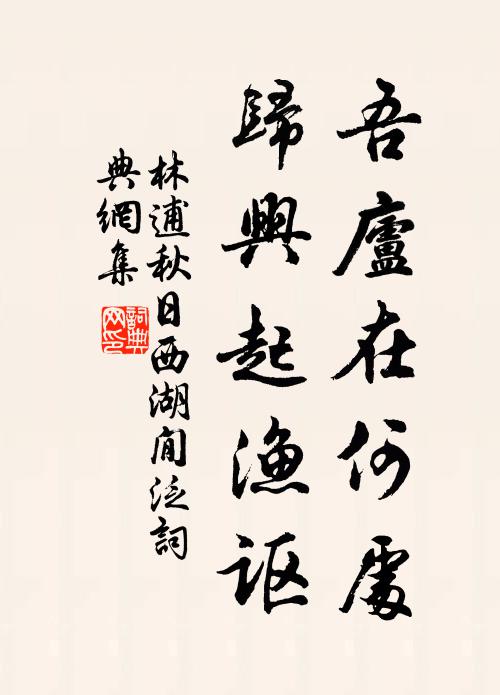 吾廬在何處
歸興起漁謳
林逋秋日西湖閒泛詞
典網集
詞典
网印